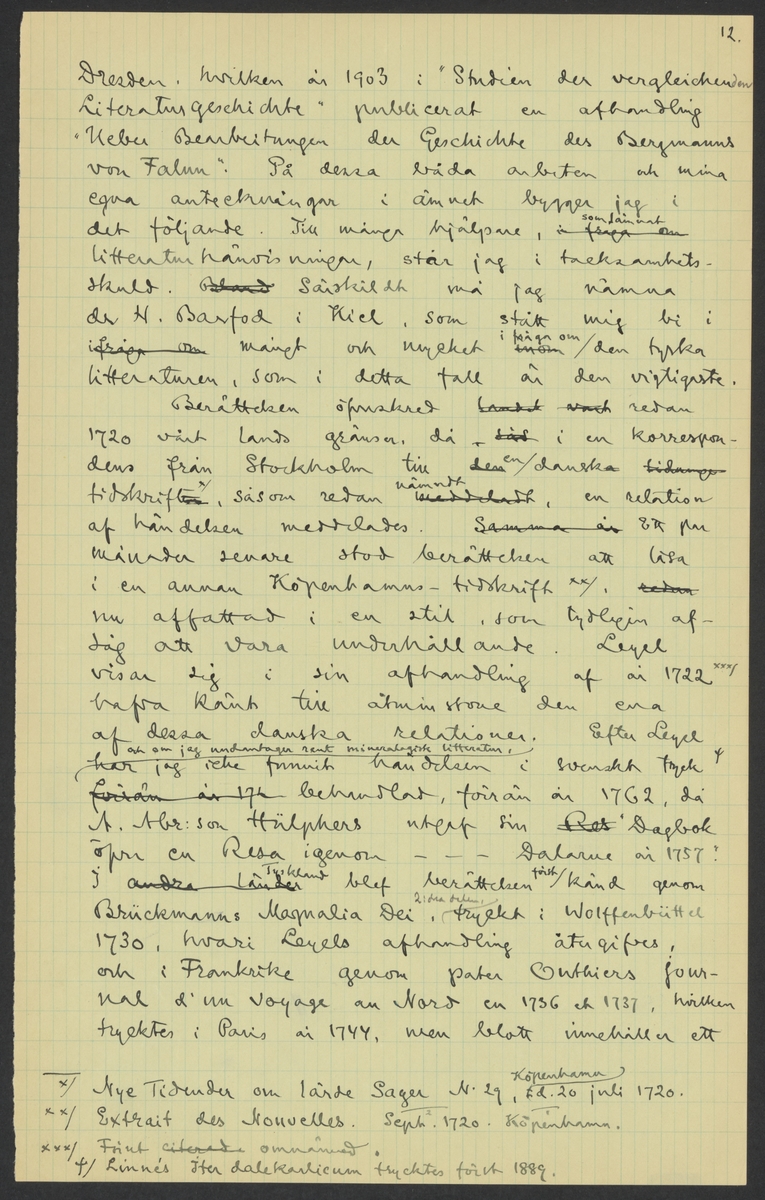 12.
Dresden. hvilken år 1903 i "Studien der vergleichenden
Literaturgeschichte" publicerat en afhandling
"Ueber Bearbeitungen der Geschichte des Bergmanns
von Falun". På dessa båda arbeten och mina
egna anteckningar i ämnet bygger jag i
det följande. Till många hjälpare, i fråga om som lämnat
litteraturhänvisningar, står jag i tacksamhets-
skuld. Bland Särskildt må jag nämna
dr H. Barfod i Kiel, som stått mig bi i
ifråga om mångt och mycket inom i fråga om / den tyska
litteraturen, som i detta fall är den vigtigaste.
Berättelsen öfverskred landet vart redan
1720 vårt lands gränser, då i en korrespon-
dens från Stockholm till den en/ danska tidninge
tidskriften x/, såsom redan meddeladt nämndt, en relation
af händelsen meddelades. Samma år Ett par
månader senare stod berättelsen att läsa
i en annan Köpenhamns-tidskrift xx/, redan
nu affattad i en stil, som tydligen af-
såg att vara underhållande. Leyel
visar sig i sin afhandling af år 1722 xxx/
hafva känt till åtminstone den ena
af dessa danska relationer. Efter Leyel
och om jag undantager rent mineralogisk litteratur,
har jag icke funnit händelsen i svenskt tryck ψ
förrän år 17 behandlad, förrän år 1762, då
A. Abr:son Hülphers utgaf sin Res "Dagbok
öfver en Resa igenom - - - Dalarne år 1757".
I andra länder Tyskland blef berättelsen först/ känd genom
Brückmanns Magnalia Dei, 2:dra delen, tryckt i Wolffenbüttel
1730, hvari Leyels afhandling återgifves,
och i Frankrike genom pater Outhiers Jour-
nal d'un Voyage au Nord en 1736 et 1737, hvilken
trycktes i Paris år 1744, men blott innehåller ett
x/ Nye Tidender om lärde Sager N:29, Köpenhamn d. 20 juli 1720.
xx/ Extrait des Nouvelles. Sept. 1720. Köpenhamn.
xxx/ Förut citerade omnämnd.
ψ/ Linnés Iter dalekarlicum trycktes först 1889.